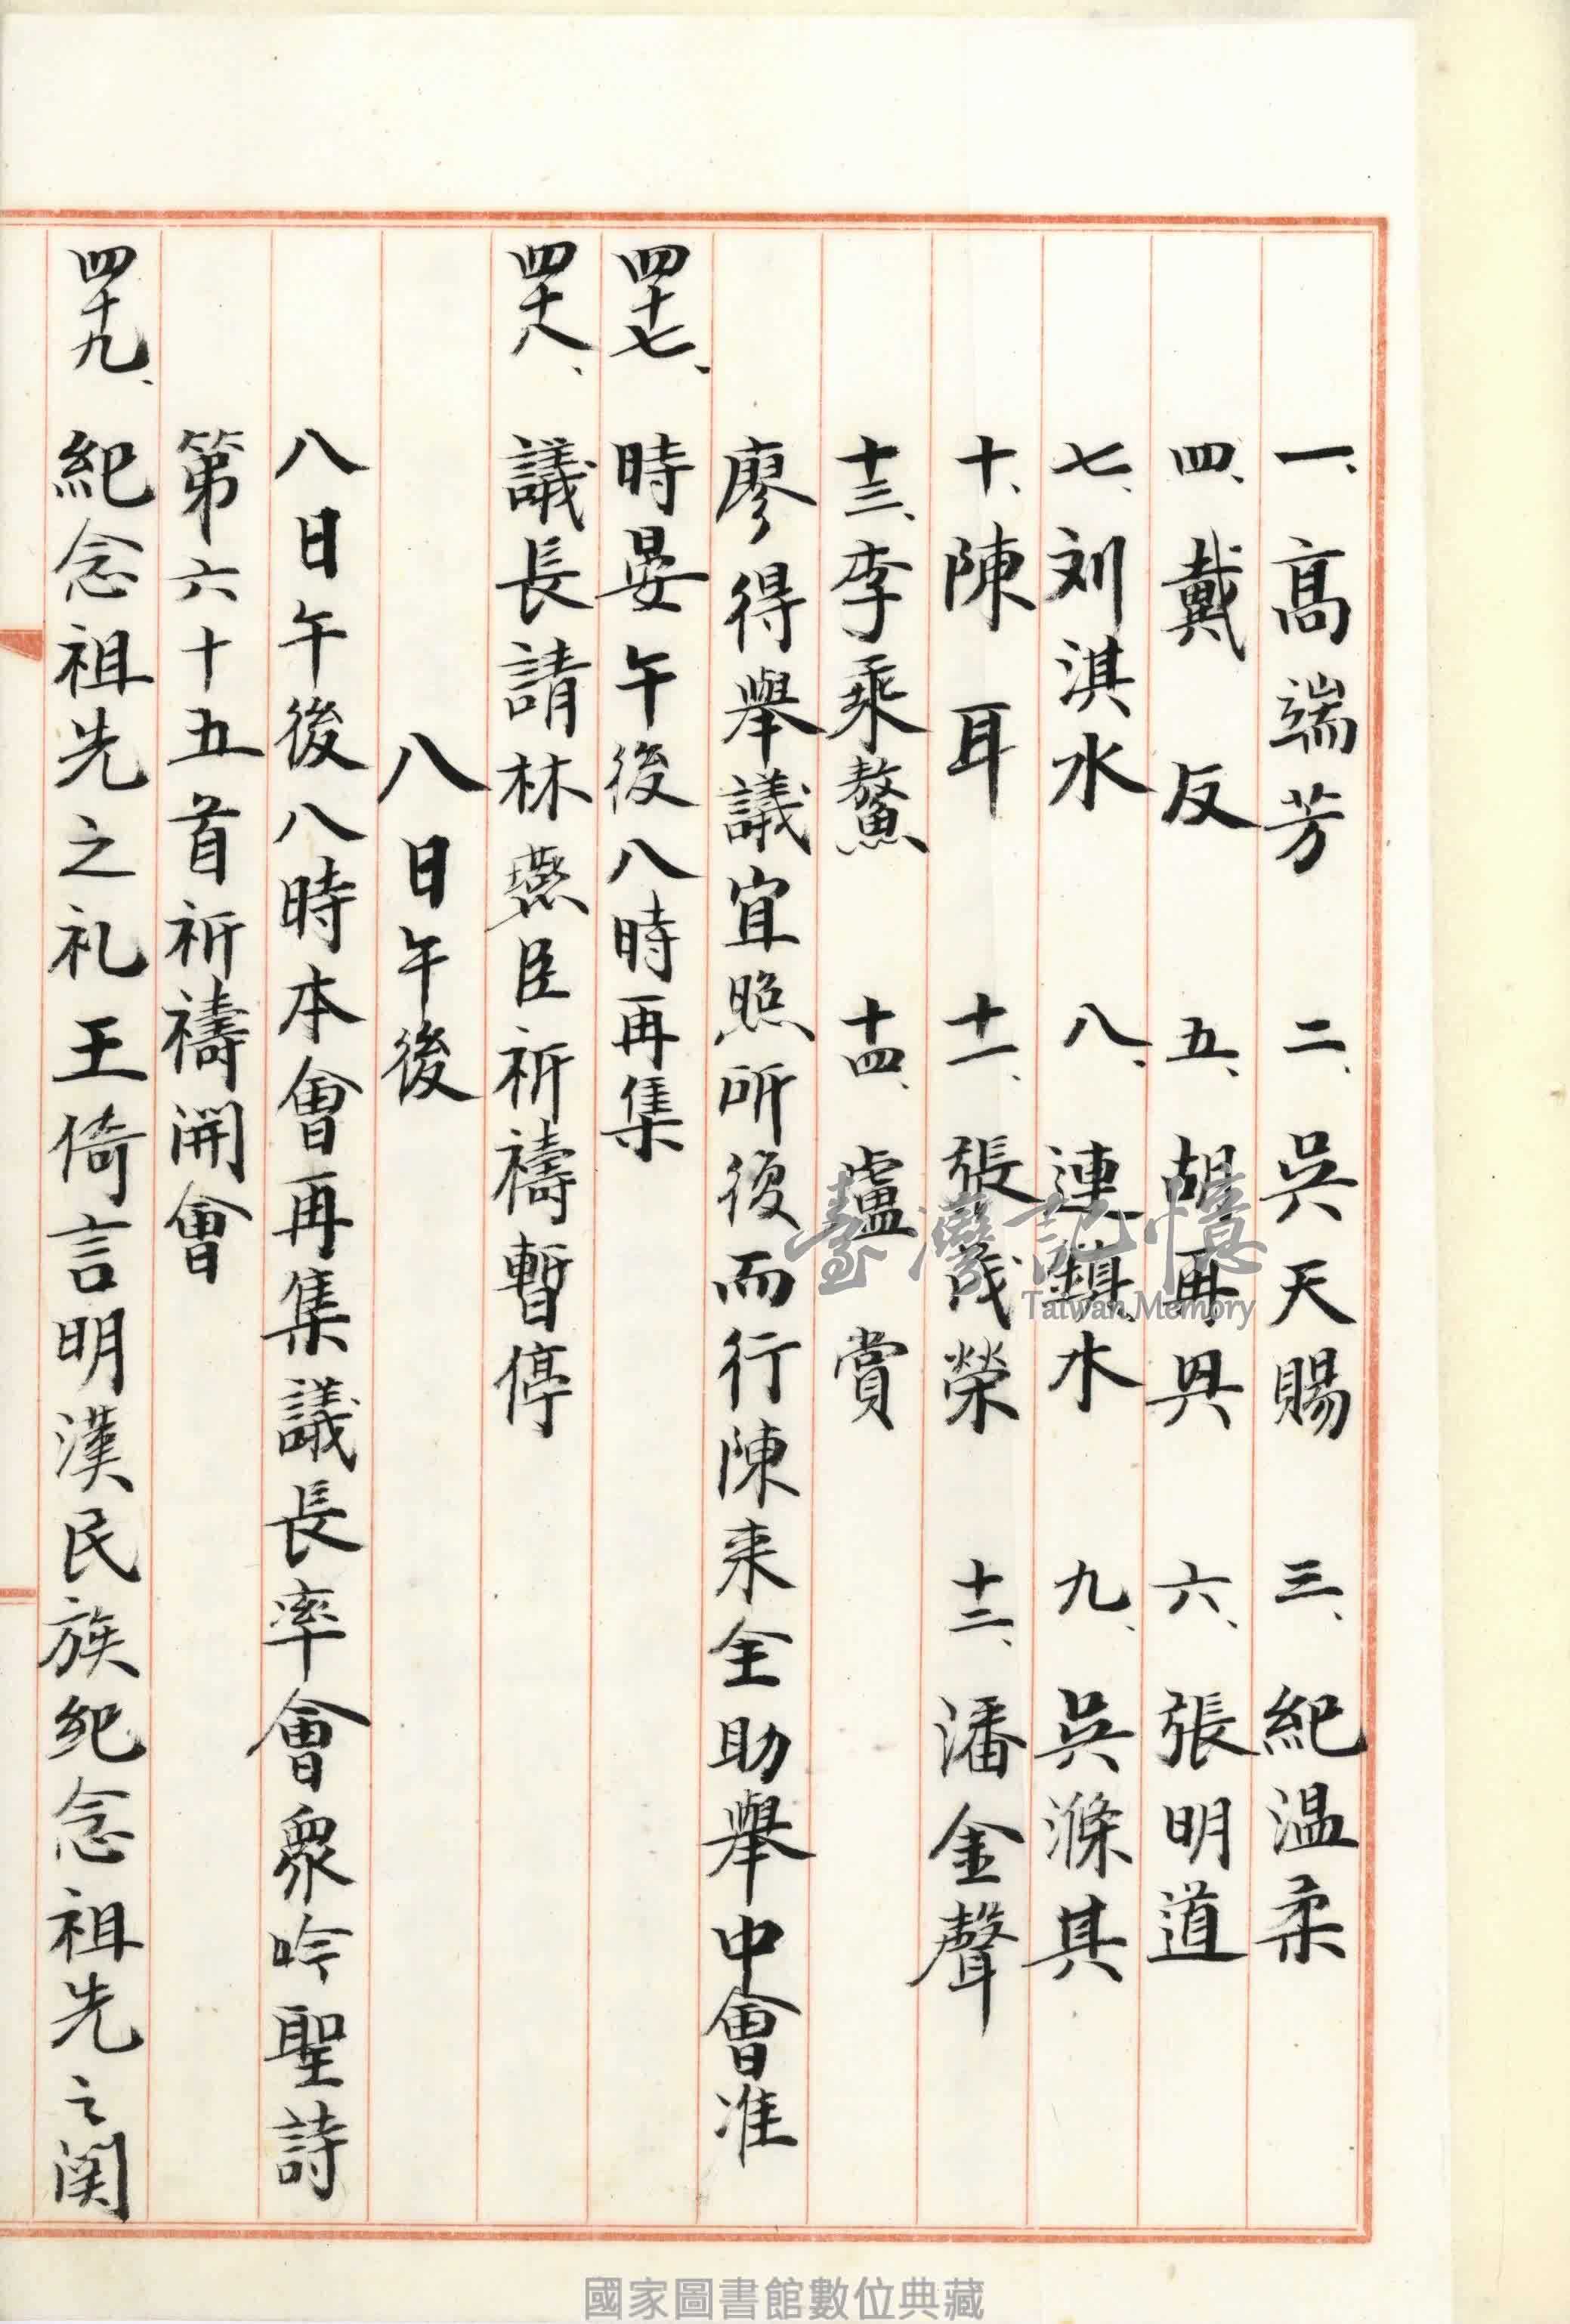 一、高端芳 二、吳天賜 三、紀温柔
四、戴反 五、胡再興 六、張明道
七、刘淇水 八、連鎮水 九、吳滌其
十、陳耳 十一、張茂榮 十二、潘金聲
十三、李乘鰲 十四、盧賞
廖得舉議宜照所後而行陳来仝助舉中會准
四十七、時晏午後八時再集
四十八、議長請林燕臣祈禱暫停
八日午後
八日午後八時本會再集議長率會衆吟聖詩
第六十五首祈禱開會
四十九、紀念祖先之礼王倚言明漢民族紀念祖先之関
臺灣記憶
Taiwan Memory
國家圖書館數位典藏